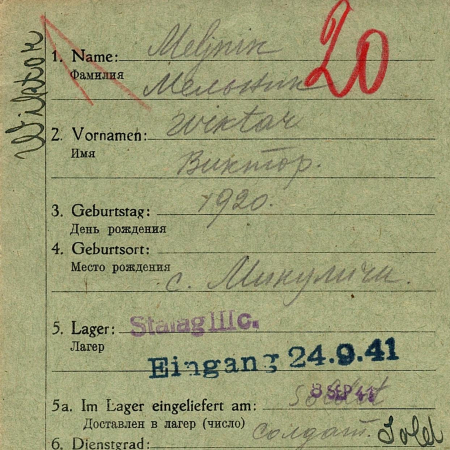 20
Wiktor
1. Name: Meljnik
Фамилия
Мельник
2. Vornamen: Wiktor
Имя
Виктор.
1920.
3. Geburtstag:
День рождения
4. Geburtsort:
Место рождения
с. Микуличи.
5. Lager: Stalag IIIc.
Лагер
Eingang 24.9.41
8 SEP 41
5a. Im Lager eingeliefert am: soldat
Доставлен в лагер (число)
солдат. Sold
6. Dienstgrad: